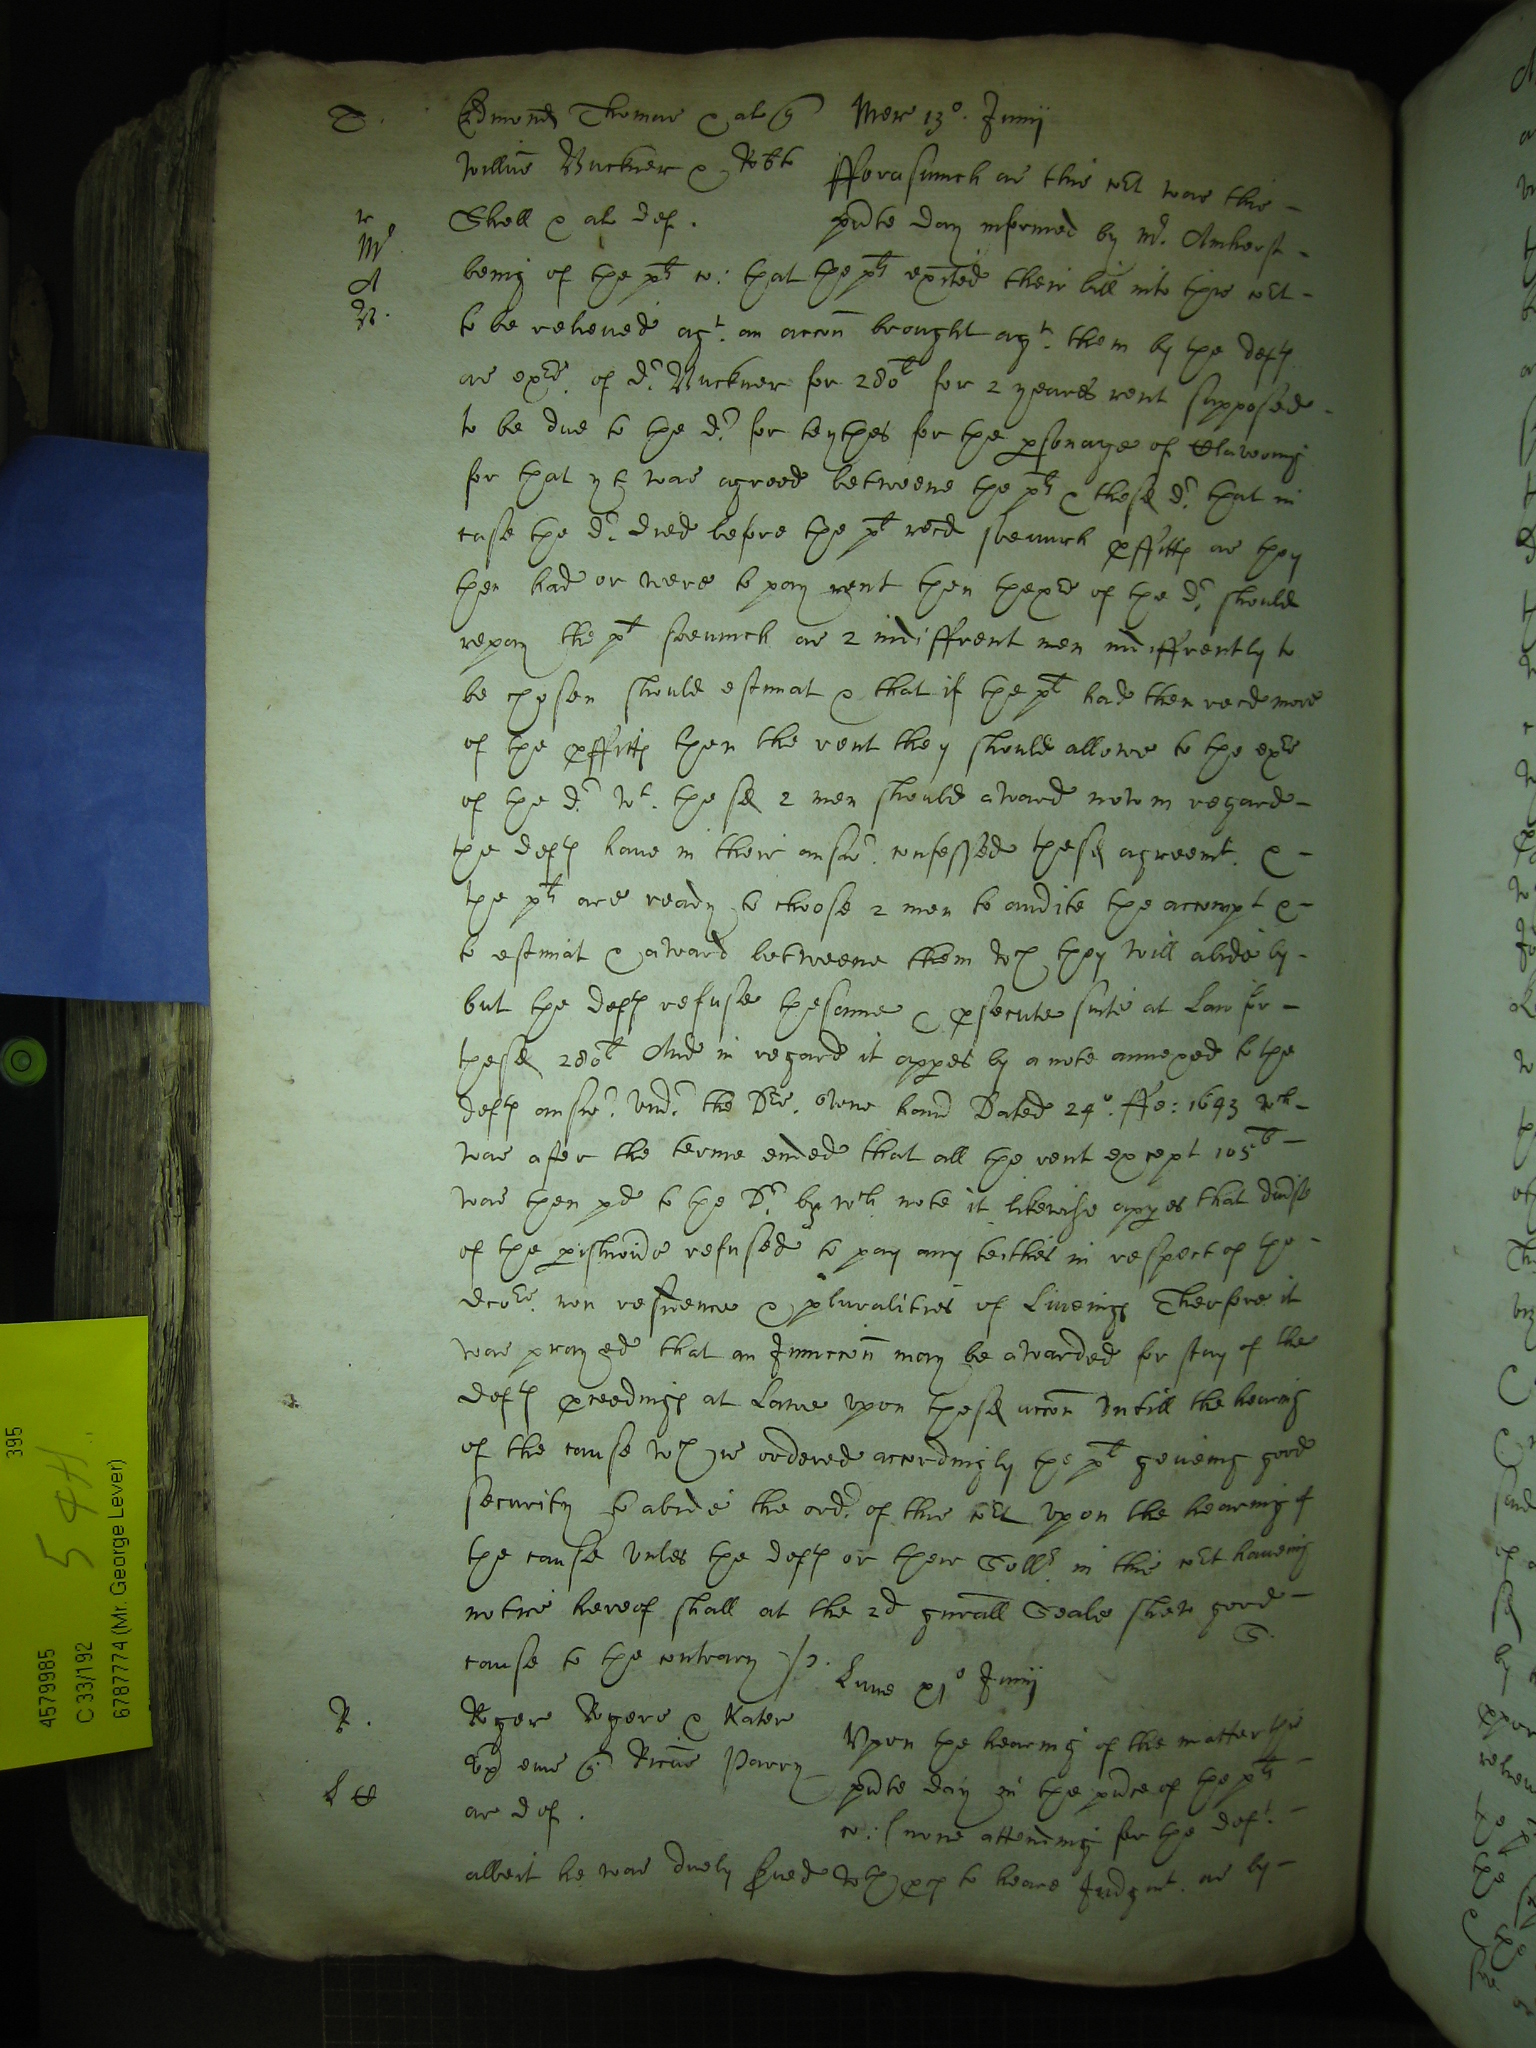 T. Edmond Thomas & al q Mer 13º. Junij
Willm Buckner & Robt fforasmuch as this Cot was this –
Shell & al def. pnte day informed by Mr. Amherst –
r
Mr
A
B.
being of the plts co: that the plts exited their bill into this Cot –
to be releived agt. an accon brought agt. them by the defts
as exrs. of Dr. Buckner for 280l for 2 yeares rent supposed –
to be due to the Dr. for teythes for the psonage of Clavering
for that yt was agreed betweene the plts & the sd Dr. that in
case the Dr. died before the plt recd soe much pffitts as they
then had or were to pay rent then thexrs of the Dr. should
repay the plt soe much as 2 indiffrent men indiffrently to
be chosen should estimat & that if the plt had then recd more
of the pffitts then the rent they should allowe to the exrs
of the Dr. wt. the sd 2 men should award now in regard –
the defts have in their answr. confessed the sd agreemt. & –
the plts are ready to choose 2 men to audite the accompt & –
to estimat & award betweene them wch they will abide by –
but the defts refuse the same & psecute suite at Law for –
the sd 280l And in regard it appes by a note annexed to the
defts answr. undr. the Drs. owne hand Dated 24º. ffe: 1643 wch –
was after the terme ended that all the rent except 105l –
was then pd to the Dr. by wch note it likewise appes that divse
of the pishners refused to pay any teithes in respect of the –
docrs. non residence & pluralities of Liveings Therfore it
was prayed that an Junccon may be awarded for stay of the
defts pceedings at Lawe upon the sd accon Untill the hearing
of the cause wch is ordered accordingly the plt geveing good
security to abide the ordr. of this Cot upon the hearing of
the cause unles the defts or their Sollr. in this Cot haveing
notice hereof shall at the 2d gnrall Seale shew good –
cause to the contrary /. S.
Lune xjº Junij
R. Roger Rogers & Kater
ux eius q Ricus Parry
L H ar def.
Upon the hearing of the matter this
pnte day in the pnce of the plts –
co: (none attending for the deft. –
albeit he was duely served wth pces to heare Judgmt. as by –
395
5 4H
4579985
C 33/192
6787774 (Mr. George Lever)